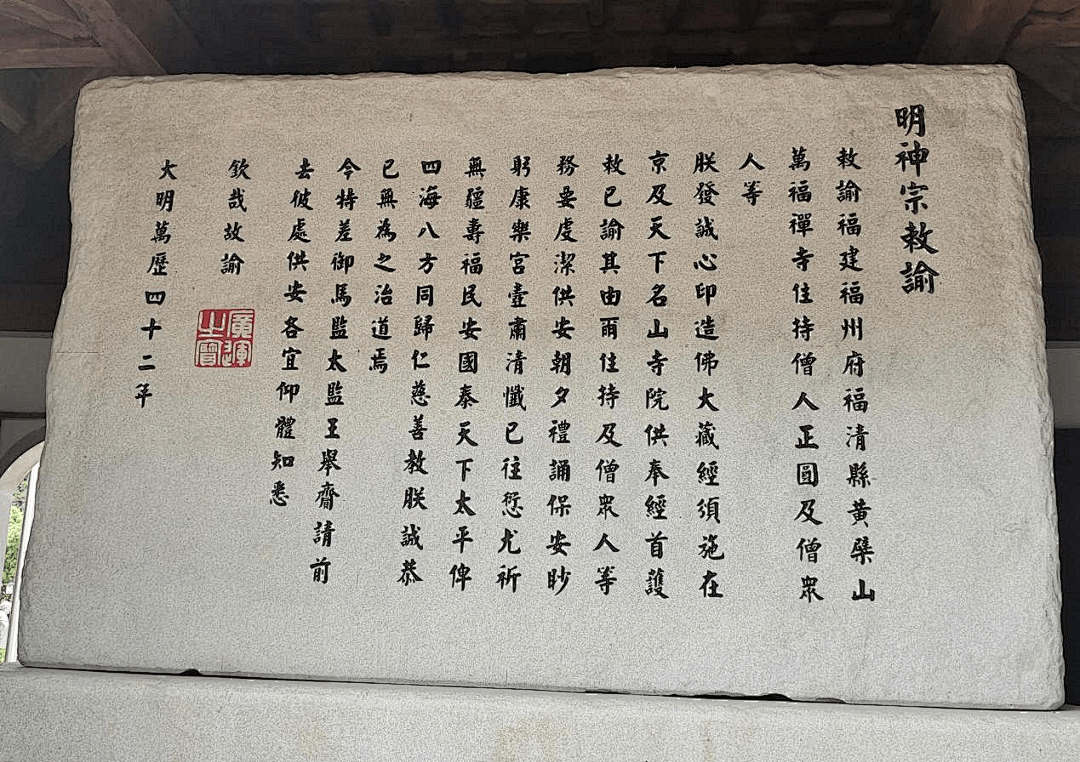 明神宗敕諭
敕諭福建福州府福清縣黃檗山
萬福禪寺住持僧人正圓及僧眾
人等
朕發誠心印造佛大藏經須施在
京及天下名山寺院供奉經首護
敕已諭其由爾住持及僧眾人等
務要虔潔供安朝夕禮誦保安眇
躬康樂宮壼肅清懺已往愆尤祈
無疆壽福民安國泰天下太平俾
四海八方同歸仁慈善教朕誠恭
已無為之治道焉
今特差御馬監太監王舉齋請前
去彼處供安各宜仰體知悉
欽哉故諭
廣運之寶
大明萬歷四十二年